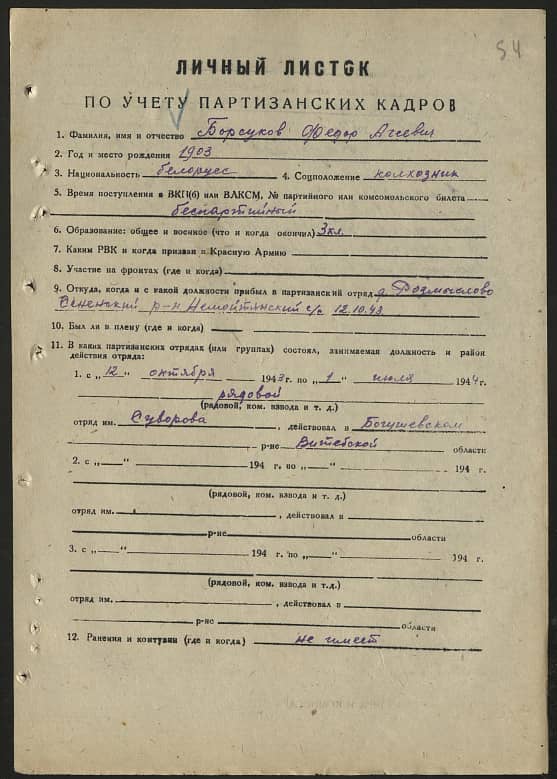 54
ЛИЧНЫЙ ЛИСТОК
ПО УЧЕТУ ПАРТИЗАНСКИХ КАДРОВ
1. Фамилия, имя и отчество Борсуков Федор Агеевич
2. Год и место рождения 1903
3. Национальность белорус 4. Соцположение колхозник
5. Время поступления в ВКП(б) или ВЛКСМ, № партийного или комсомольского билета
беспартийный
6. Образование: общее и военное (что и когда окончил) 3кл
7. Каким РВК и когда призван в Красную Армию
8. Участие на фронтах (где и когда)
9. Откуда, когда и с какой должности прибыл в партизанский отряд д. Розмыслово
Сененский р-н Немойтянский с/с 12.10.43
10. Был ли в плену (где и когда)
11. В каких партизанских отрядах (или группах) состоял, занимаемая должность и район
действия отряда:
1. с „12" октября 1943г. по „1" июля 1944г.
рядовой
(рядовой, ком. взвода и т. д.)
отряд им. Суворова, действовал в Богушевском
р-не Витебской области
2. с „—" 194 г. по „—" 194 г.
(рядовой, ком. взвода и т. д.)
отряд им., действовал в
р-не области
3. с „—" 194 г. по „—" 194 г.
(рядовой, ком. взвода и т.д.)
отряд им., действовал в
р-не области
12. Ранения и контузии (где и когда) не имеет